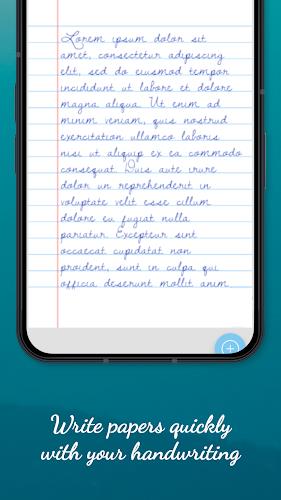 Lorem ipsum dolor sit
amet, consectetur adipiscing
elit, sed do eiusmod tempor
incididunt ut labore et dolore
magna aliqua. Ut enim ad
minim veniam, quis nostrud
exercitation ullamco laboris
nisi ut aliquip ex ea commodo
consequat. Duis aute irure
dolor un reprehenderit in
voluptate velit esse cillum
dolore eu fugiat nulla
pariatur. Excepteur sint
occaecat cupidatat non
proident, sunt in culpa qui
officia deserunt mollit anim
Write papers quickly
with your handwriting